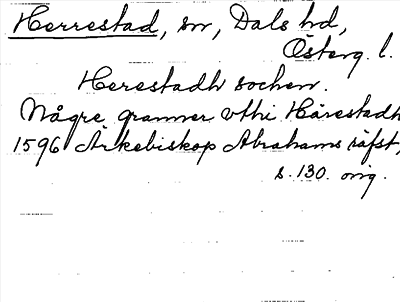 Herrestad, sn, Dals hd,
Österg. l.
Herestadh sochen.
Några granner vthi Härestadh
1596 Ärkebiskop Abrahams räfst,
s. 130. orig.